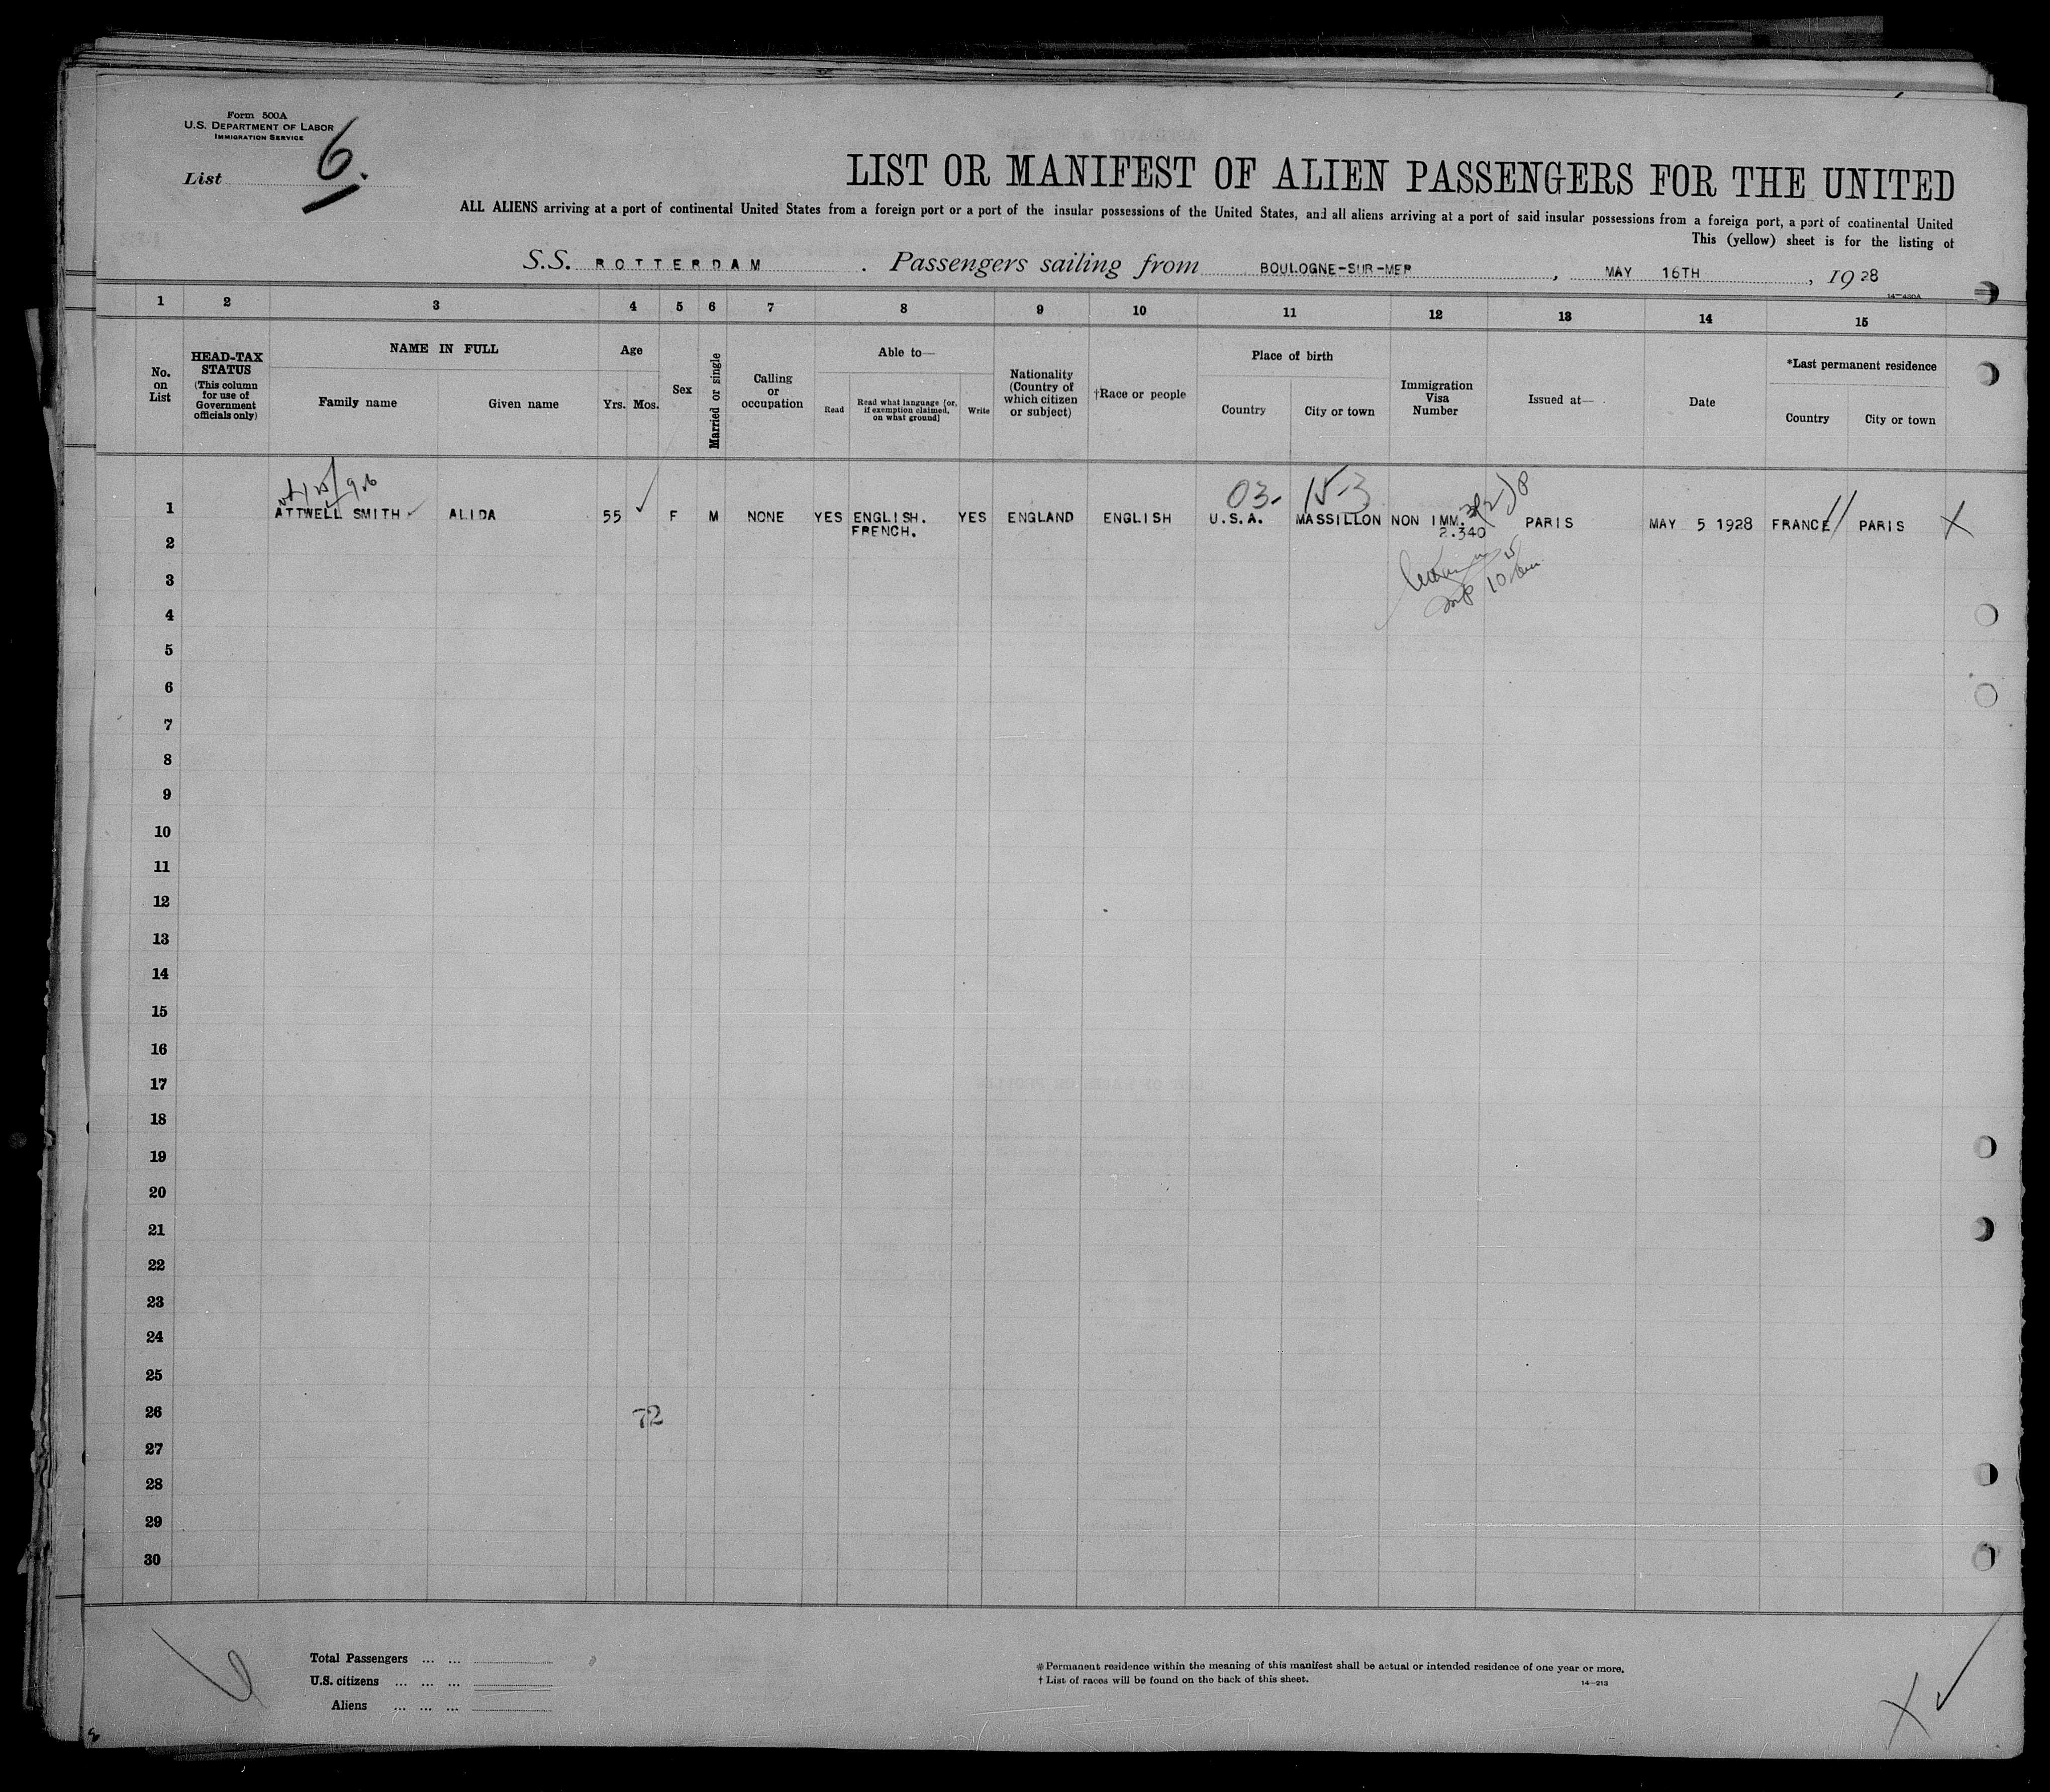 Form 500A
U.S. DEPARTMENT OF LABOR
IMMIGRATION SERVICE
List 6.
LIST OR MANIFEST OF ALIEN PASSENGERS FOR THE UNITED
ALL ALIENS arriving at a port of continental United States from a foreign port or a port of the insular possessions of the United States, and all aliens arriving at a port of said insular possessions from a foreign port, a port of continental United
This (yellow) sheet is for the listing of
S.S. ROTTERDAM . Passengers sailing from BOULOGNE-SUR-MER , MAY 16TH , 1928
14-430A
1 2 3 4 5 6 7 8 9 10 11 12 13 14 15
No. on List
HEAD-TAX STATUS
(This column for use of Government officials only)
NAME IN FULL
Family name Given name
Age
Yrs. Mos.
Sex
Married or single
Calling or occupation
Able to—
Read
Read what language [or, if exemption claimed, on what ground]
Write
Nationality (Country of which citizen or subject)
†Race or people
Place of birth
Country City or town
Immigration Visa Number
Issued at—
Date
*Last permanent residence
Country City or town
03- 15-3
1 ATTWELL SMITH ALIDA 55 F M NONE YES ENGLISH. YES ENGLAND ENGLISH U.S.A. MASSILLON NON IMM. PARIS MAY 5 1928 FRANCE PARIS X
FRENCH. 2.340
2
3
4
5
6
7
8
9
10
11
12
13
14
15
16
17
18
19
20
21
22
23
24
25
26 72
27
28
29
30
Total Passengers ... ...
U.S. citizens ... ... ...
Aliens ... ... ...
*Permanent residence within the meaning of this manifest shall be actual or intended residence of one year or more.
† List of races will be found on the back of this sheet.
14-213
X